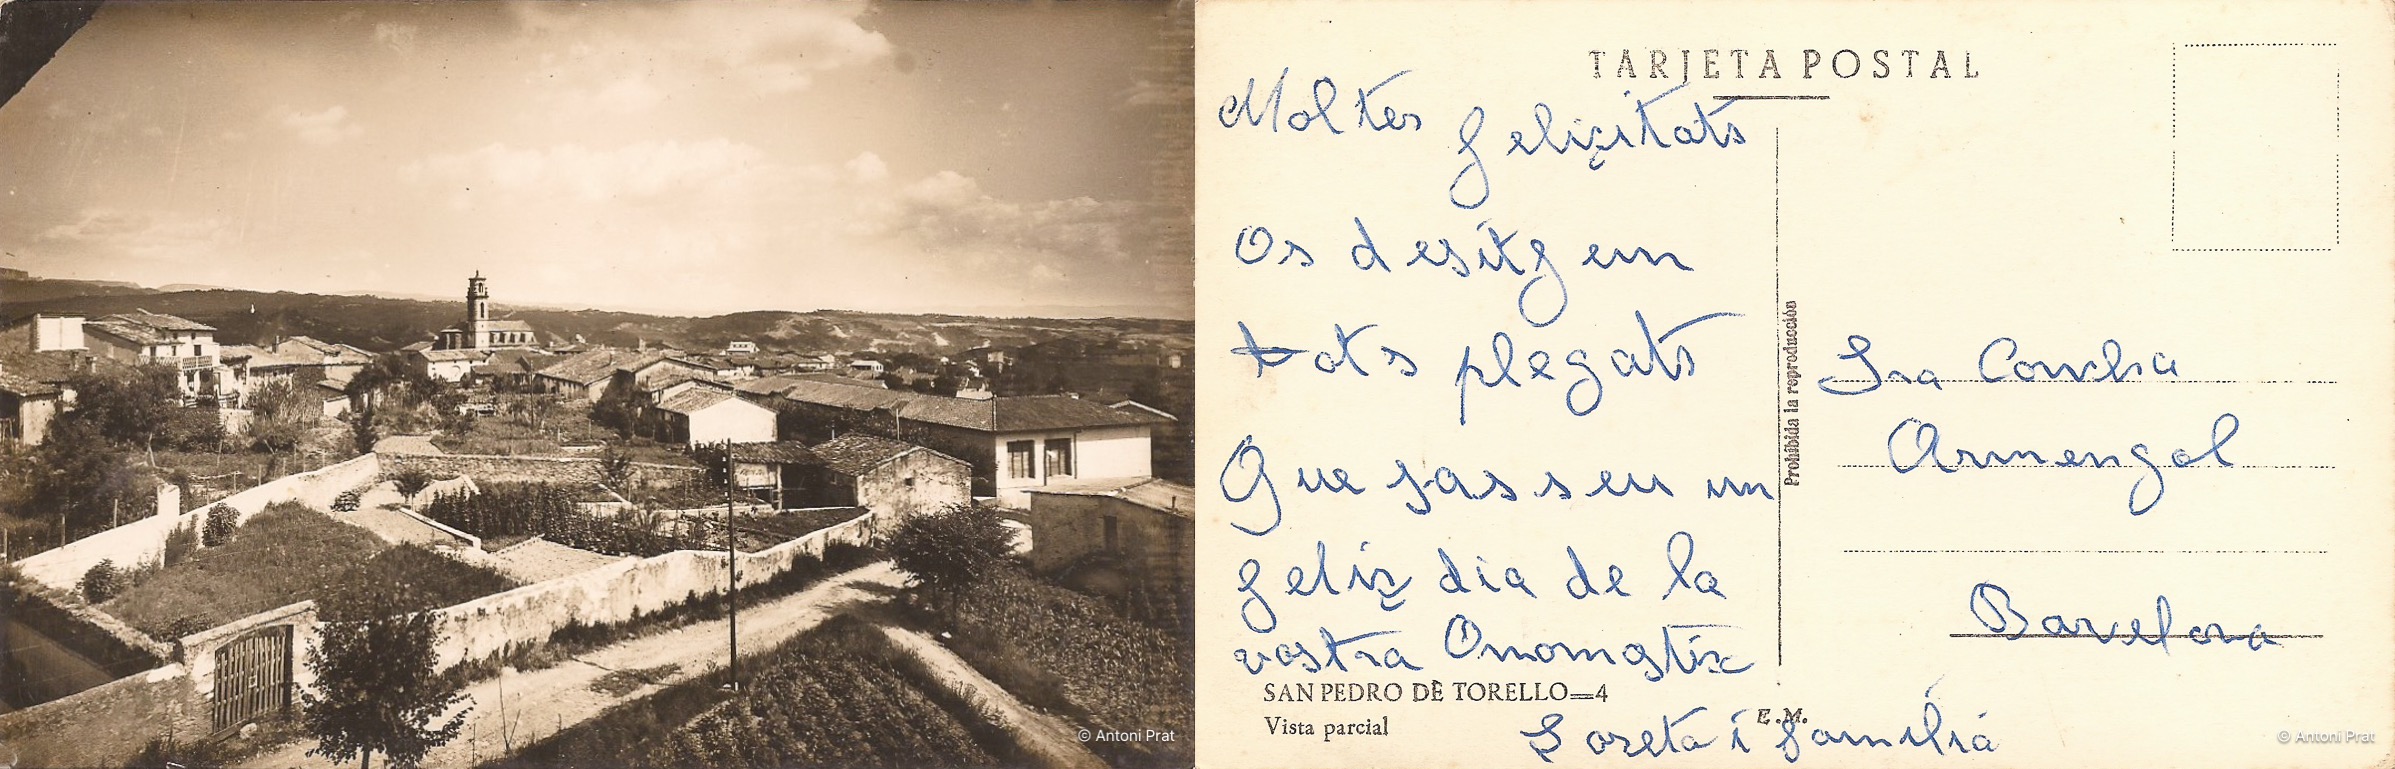 © Antoni Prat
TARJETA POSTAL
Moltes felizitats
Os desitgem
tots plegats
Que fasseu un
feliz dia de la
vostra Onomastix
SAN PEDRO DE TORELLO=4
Vista parcial
Loreta i familia
E.M.
Prohibida la reproducción
Sra Concha
Armengol
Barcelona
© Antoni Prat